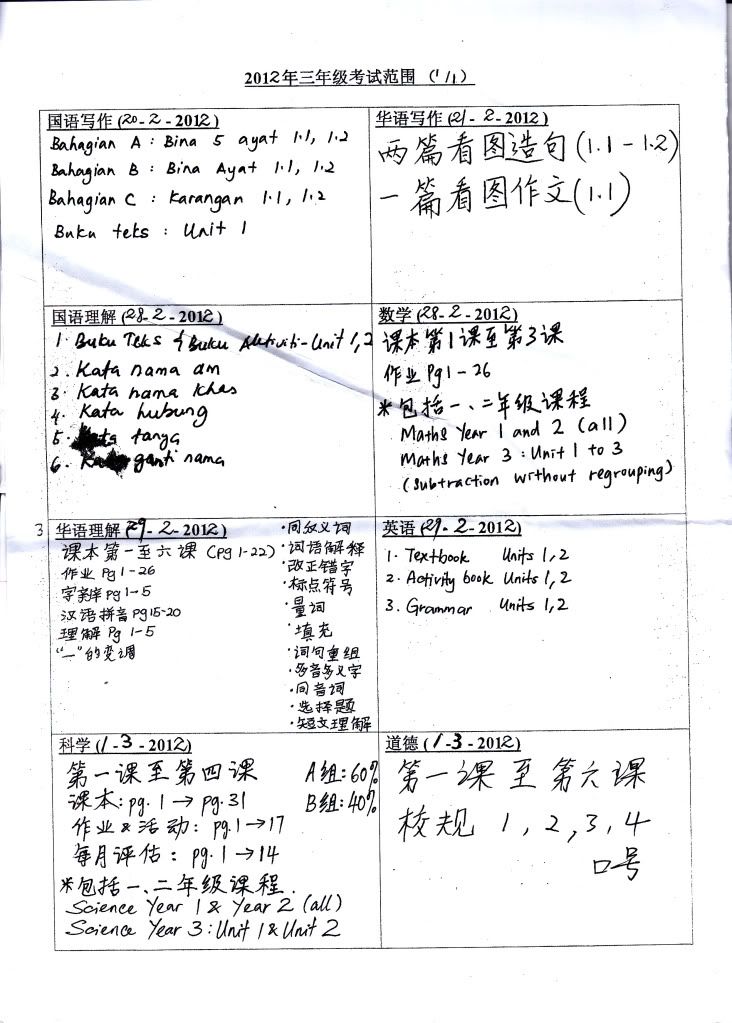 2012年三年级考试范围 (1/1)
国语写作 (20-2-2012)
Bahagian A : Bina 5 ayat 1.1, 1.2
Bahagian B : Bina Ayat 1.1, 1.2
Bahagian C : Karangan 1.1, 1.2
Buku teks : Unit 1
华语写作 (21-2-2012)
两篇看图造句(1.1-1.2)
一篇看图作文(1.1)
国语理解 (28-2-2012)
1. Buku Teks & Buku Aktiviti-Unit 1,2
2. Kata nama am
3. Kata nama khas
4. Kata hubung
5. Kata tanya
6. Kata ganti nama
数学 (28-2-2012)
课本第1课至第3课
作业 Pg1-26
*包括一、二年级课程
Maths Year 1 and 2 (all)
Maths Year 3 : Unit 1 to 3
(subtraction without regrouping)
3 华语理解 (29-2-2012)
课本第一至六课 (pg 1-22)
作业 Pg 1-26
pg 1-5
汉语拼音 pg15-20
理解 Pg 1-5
“一”的变调
·同反义词
·词语解释
·改正错字
·标点符号
·量词
·填充
·词句重组
·多音多义字
·同音词
·选择题
·短文理解
英语 (29-2-2012)
1. Textbook Units 1,2
2. Activity book Units 1,2
3. Grammar Units 1,2
科学 (1-3-2012)
第一课至第四课 A组:60%
课本:pg.1→pg.31 B组:40%
作业&活动: pg.1→17
每月评估: pg.1→14
*包括一、二年级课程.
Science Year 1 & Year 2 (all)
Science Year 3:Unit 1 & Unit 2
道德 (1-3-2012)
第一课至第六课
校规 1,2,3,4
口号